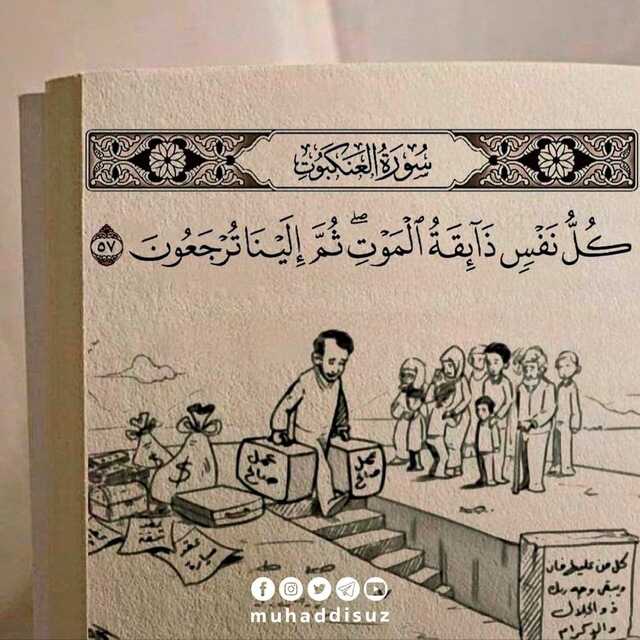 سُورَةُ العَنكَبُوتِ
كُلُّ نَفْسٍ ذَآئِقَةُ ٱلْمَوْتِ ۖ ثُمَّ إِلَيْنَا تُرْجَعُونَ ٥٧
عمل صالح
عمل صالح
$
$
شقة
كل من عليها فان
ويبقى وجه ربك
ذو الجلال
والإكرام
muhaddisuz